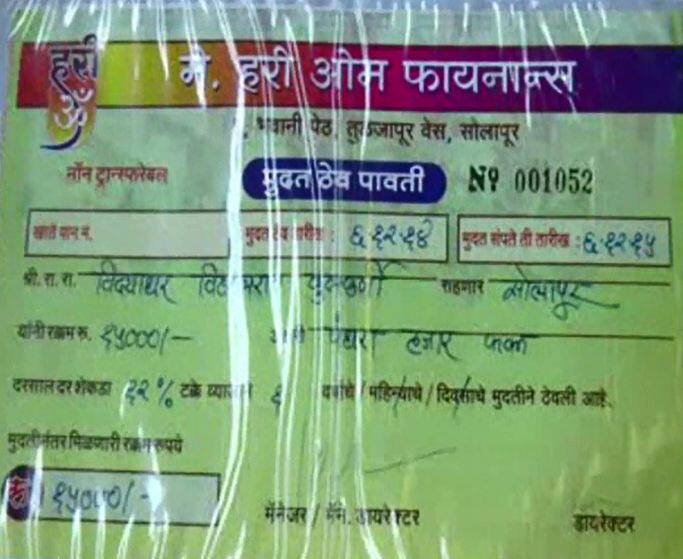 हरी ॐ
मे. हरी ओम फायनान्स
भवानी पेठ, तुळजापूर वेस, सोलापूर
नॉन ट्रान्स्फरेबल मुदत ठेव पावती Nº 001052
खाते पान नं. मुदत ठेव तारीख : ६.१२.१४ मुदत संपते ती तारीख : ६.१२.१५
श्री. रा. रा. विद्याधर राहणार सोलापूर
यांनी रक्कम रु. १५०००/- पंधरा हजार फक्त
दरसाल दर शेकडा १२ % टक्के व्याजाने १ वर्षाचे / महिन्याचे / दिवसाचे मुदतीने ठेवली आहे.
मुदतीनंतर मिळणारी रक्कम रुपये
रु. १५०००/-
मॅनेजर / मॅने. डायरेक्टर डायरेक्टर